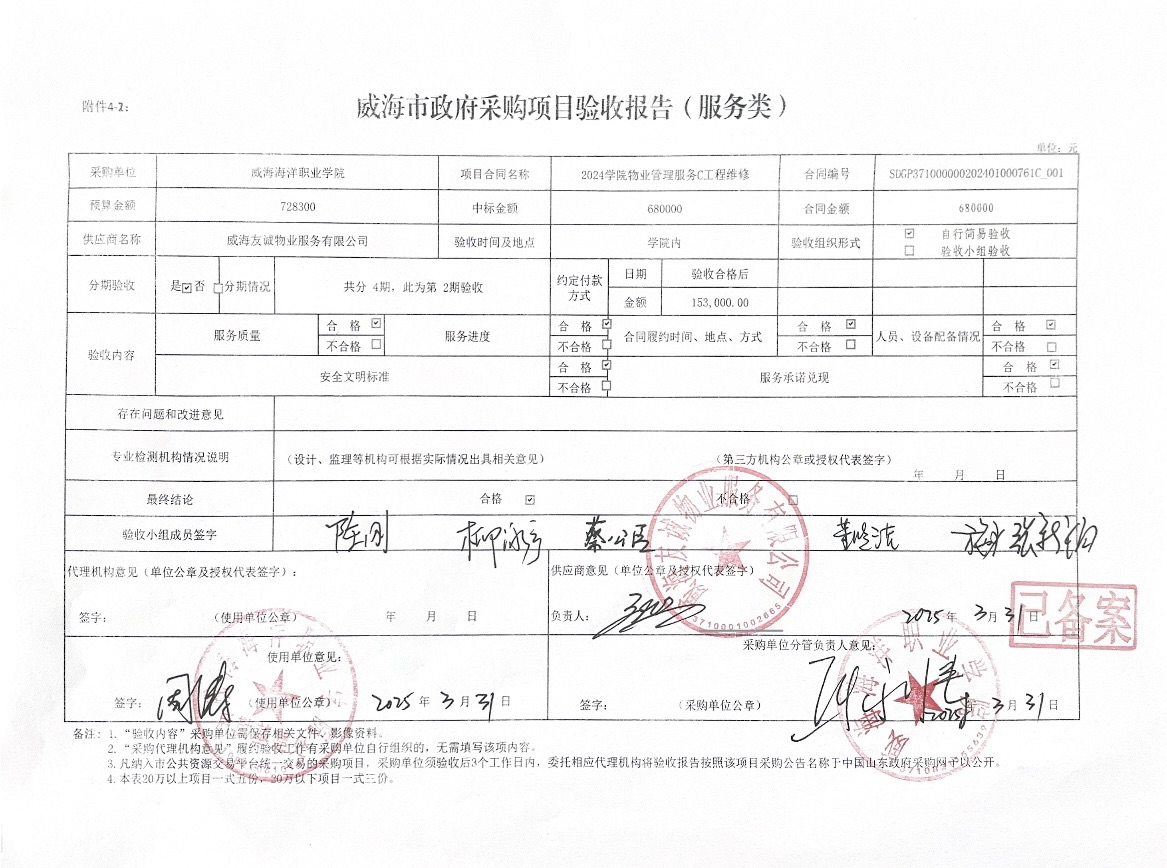 附件4-2：
威海市政府采购项目验收报告（服务类）
单位：元
采购单位 威海海洋职业学院 项目合同名称 2024学院物业管理服务C工程维修 合同编号 SDGP371000000202401000761C_001
预算金额 728300 中标金额 680000 合同金额 680000
供应商名称 威海友诚物业服务有限公司 验收时间及地点 学院内 验收组织形式 ☑ 自行简易验收
☐ 验收小组验收
分期验收 是☑否☐ 分期情况 共分 4期，此为第 2期验收 约定付款方式 日期 验收合格后
金额 153,000.00
验收内容 服务质量 合 格 ☑ 服务进度 合 格 ☑ 合同履约时间、地点、方式 合 格 ☑ 人员、设备配备情况 合 格 ☑
不合格 ☐ 不合格 ☐ 不合格 ☐ 不合格 ☐
安全文明标准 合 格 ☑ 服务承诺兑现 合 格 ☑
不合格 ☐ 不合格 ☐
存在问题和改进意见
专业检测机构情况说明 （设计、监理等机构可根据实际情况出具相关意见） （第三方机构公章或授权代表签字）
年 月 日
最终结论 合格 ☑ 不合格 ☐
验收小组成员签字
代理机构意见（单位公章及授权代表签字）： 供应商意见（单位公章及授权代表签字）
签字： （使用单位公章） 年 月 日 负责人： 2025年 3月31日
已备案
3710001002665
使用单位意见： 采购单位分管负责人意见：
签字： （使用单位公章） 2025年 3月31日 签字： （采购单位公章） 2025年 3月31日
备注：1.“验收内容”采购单位需保存相关文件、影像资料。
2.“采购代理机构意见”履约验收工作有采购单位自行组织的，无需填写该项内容。
3.凡纳入市公共资源交易平台统一交易的采购项目，采购单位须验收后3个工作日内，委托相应代理机构将验收报告按照该项目采购公告名称于中国山东政府采购网予以公开。
4.本表20万以上项目一式五份，20万以下项目一式三份。